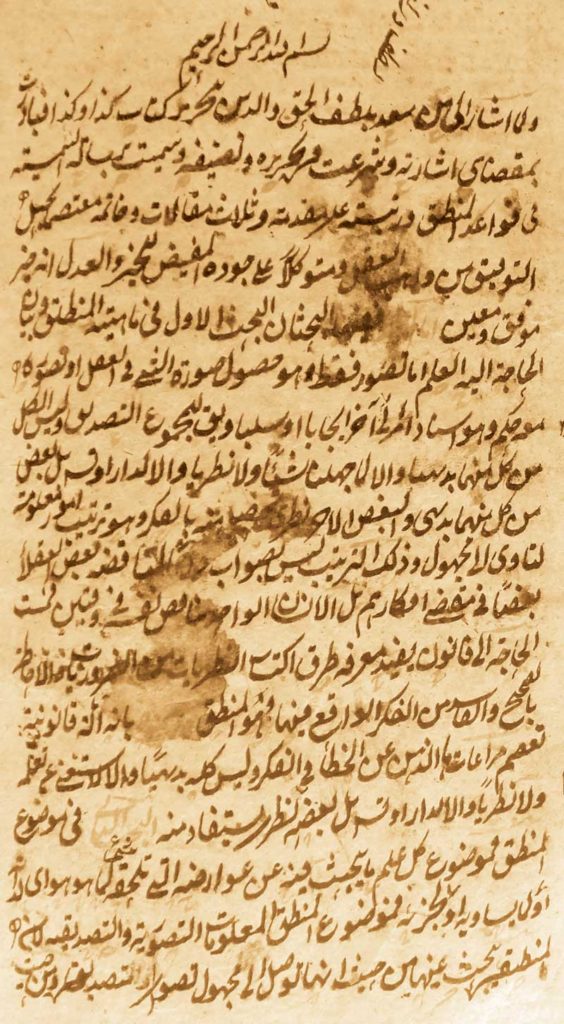 بسم الله الرحمن الرحيم
ولما اشار الى من سعد بلطف الحق والدين بتحرير كتاب كذا وكذا فبادرت
بمقتضاى اشارته وشرعت في تحريره وتصنيفه وسميت برسالة الشمسيته
فى قواعد المنطق ورتبته على مقدمته وثلاث مقالات وخاتمه معتصما بحبل
التوفيق من واهب العقل ومتوكلاً على جوده المفيض للخير والعدل انه خير
موفق ومعين ففيها البحثان البحث الاول فى ماهيته المنطق وبيان
الحاجة اليه العلم اما تصور فقط وهو حصول صورة الشئ فى العقل او تصوره
معه حكم وهو اسناد امر الى آخر ايجابا او سلبا ويق للمجموع التصديق وليس الكل
من كل منهما بديهيا والا لما جهلنا شيئًا ولا نظريا والا لدار او تس بل البعض
من كل منهما بديهى والبعض الاخر نظرى يحصل منه بالفكر وهو ترتيب امور معلومة
لتادى الى مجهول وذلك الترتيب ليس بصواب لمناقضه بعض العقلاء
بعضًا فى مقتضى افكارهم بل الانسان الواحد يناقض نفسه فى وقتين فمست
الحاجة الى قانون يفيد معرفه طرق اكتساب النظريات من الضروريات والاحاطة
بالصحيح والفاسد من الفكر الواقع فيها وهو المنطق بانه آلة قانونية
تعصم مراعاتها الذهن عن الخطأ في الفكر وليس كله بديهيًا والا لاستغنى عن تعلمه
ولا نظريًا والا لدار او تس بل بعضه نظرى يستفاد منه فى موضوع
المنطق موضوع كل علم ما يبحث فيه عن عوارضه التى تلحقه لما هو هو اى لذاته
او لما يساويه او لجزئه فموضوع المنطق المعلومات التصورية والتصديقيه لان
المنطقى يبحث عنها من حيث انها توصل الى مجهول تصورى او تصديقى ومن حيث